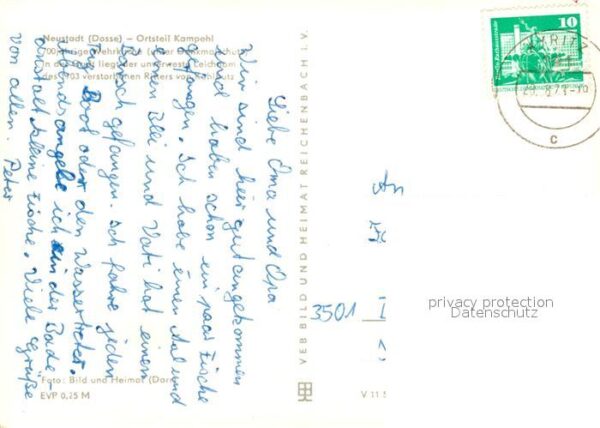 Neustadt (Dosse) – Ortsteil Kampehl
700jährige Wehrkirche (unter Denkmalschutz)
In der Gruft liegt der unverweste Leichnam
des 1703 verstorbenen Ritters von Kahlbutz
Liebe Oma und Opa
Wir sind hier gut angekommen
und haben schon ein paar Fische
gefangen. Ich habe einen Aal und
einen Blei und Vati hat einen
Barsch gefangen. Ich fahre jeden
Tag Boot oder den Wassertreter.
Abends angele ich in der Bade-
anstalt kleine Fische. Viele Grüße
von allen. Peter
Foto: Bild und Heimat
EVP 0,25 M
VEB BILD UND HEIMAT REICHENBACH I. V.
V 11 5
10
DDR
C
An
3501
privacy protection
Datenschutz